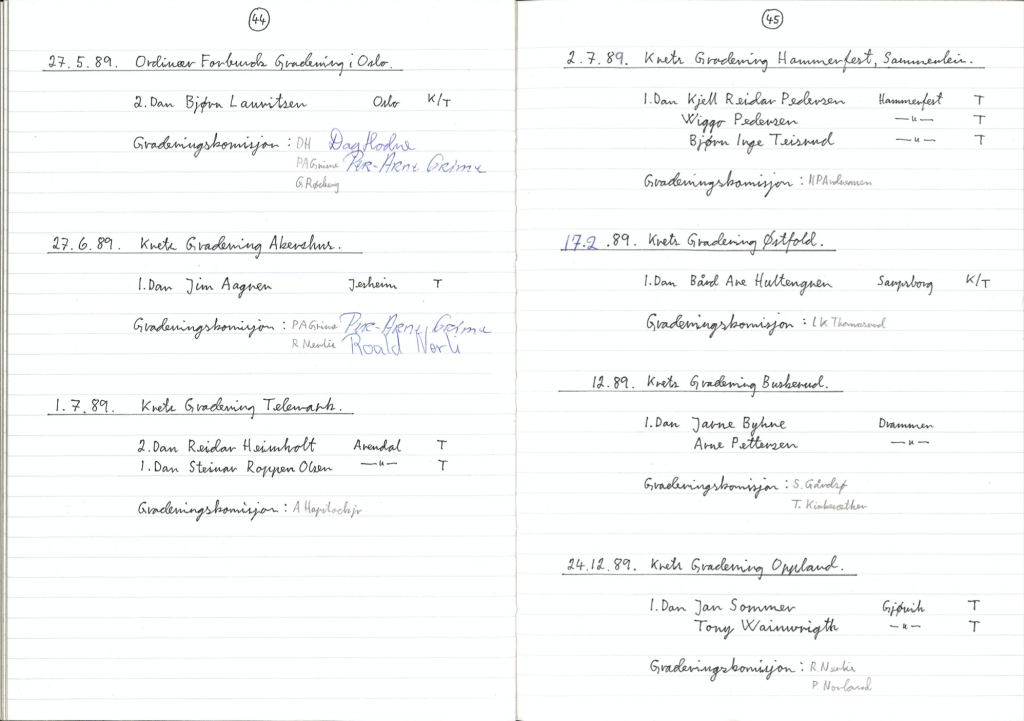 44
27.5.89. Ordinær Forbunds Gradering i Oslo.
2.Dan Bjørn Lauritsen Oslo K/T
Graderingskomisjon : DH Dag Hodne
PAGrime Per-Arne Grime
G.
27.6.89. Krets Gradering Akershus.
1.Dan Jim Aagren Jesheim T
Graderingskomisjon : PAGrime Per-Arne Grime
R Roald
1.7.89. Krets Gradering Telemark.
2.Dan Reidar Heimholt Arendal T
1.Dan Steinar Roppen Olsen —"— T
Graderingskomisjon : A
45
2.7.89. Krets Gradering Hammerfest, Sommerleir.
1.Dan Kjell Reidar Pedersen Hammerfest T
Wiggo Pedersen —"— T
Bjørn Inge Teisrud —"— T
Graderingskomisjon : HPAndreassen
17.2.89. Krets Gradering Østfold.
1.Dan Bård Are Hultengren Sarpsborg K/T
Graderingskomisjon : Thomasrud
12.89. Krets Gradering Buskerud.
1.Dan Jarne Byhne Drammen
Arne Pettersen —"—
Graderingskomisjon : S.
T.
24.12.89. Krets Gradering Oppland.
1.Dan Jan Sommer Gjøvik T
Tony Wainwrigth —"— T
Graderingskomisjon : R
P. Norland